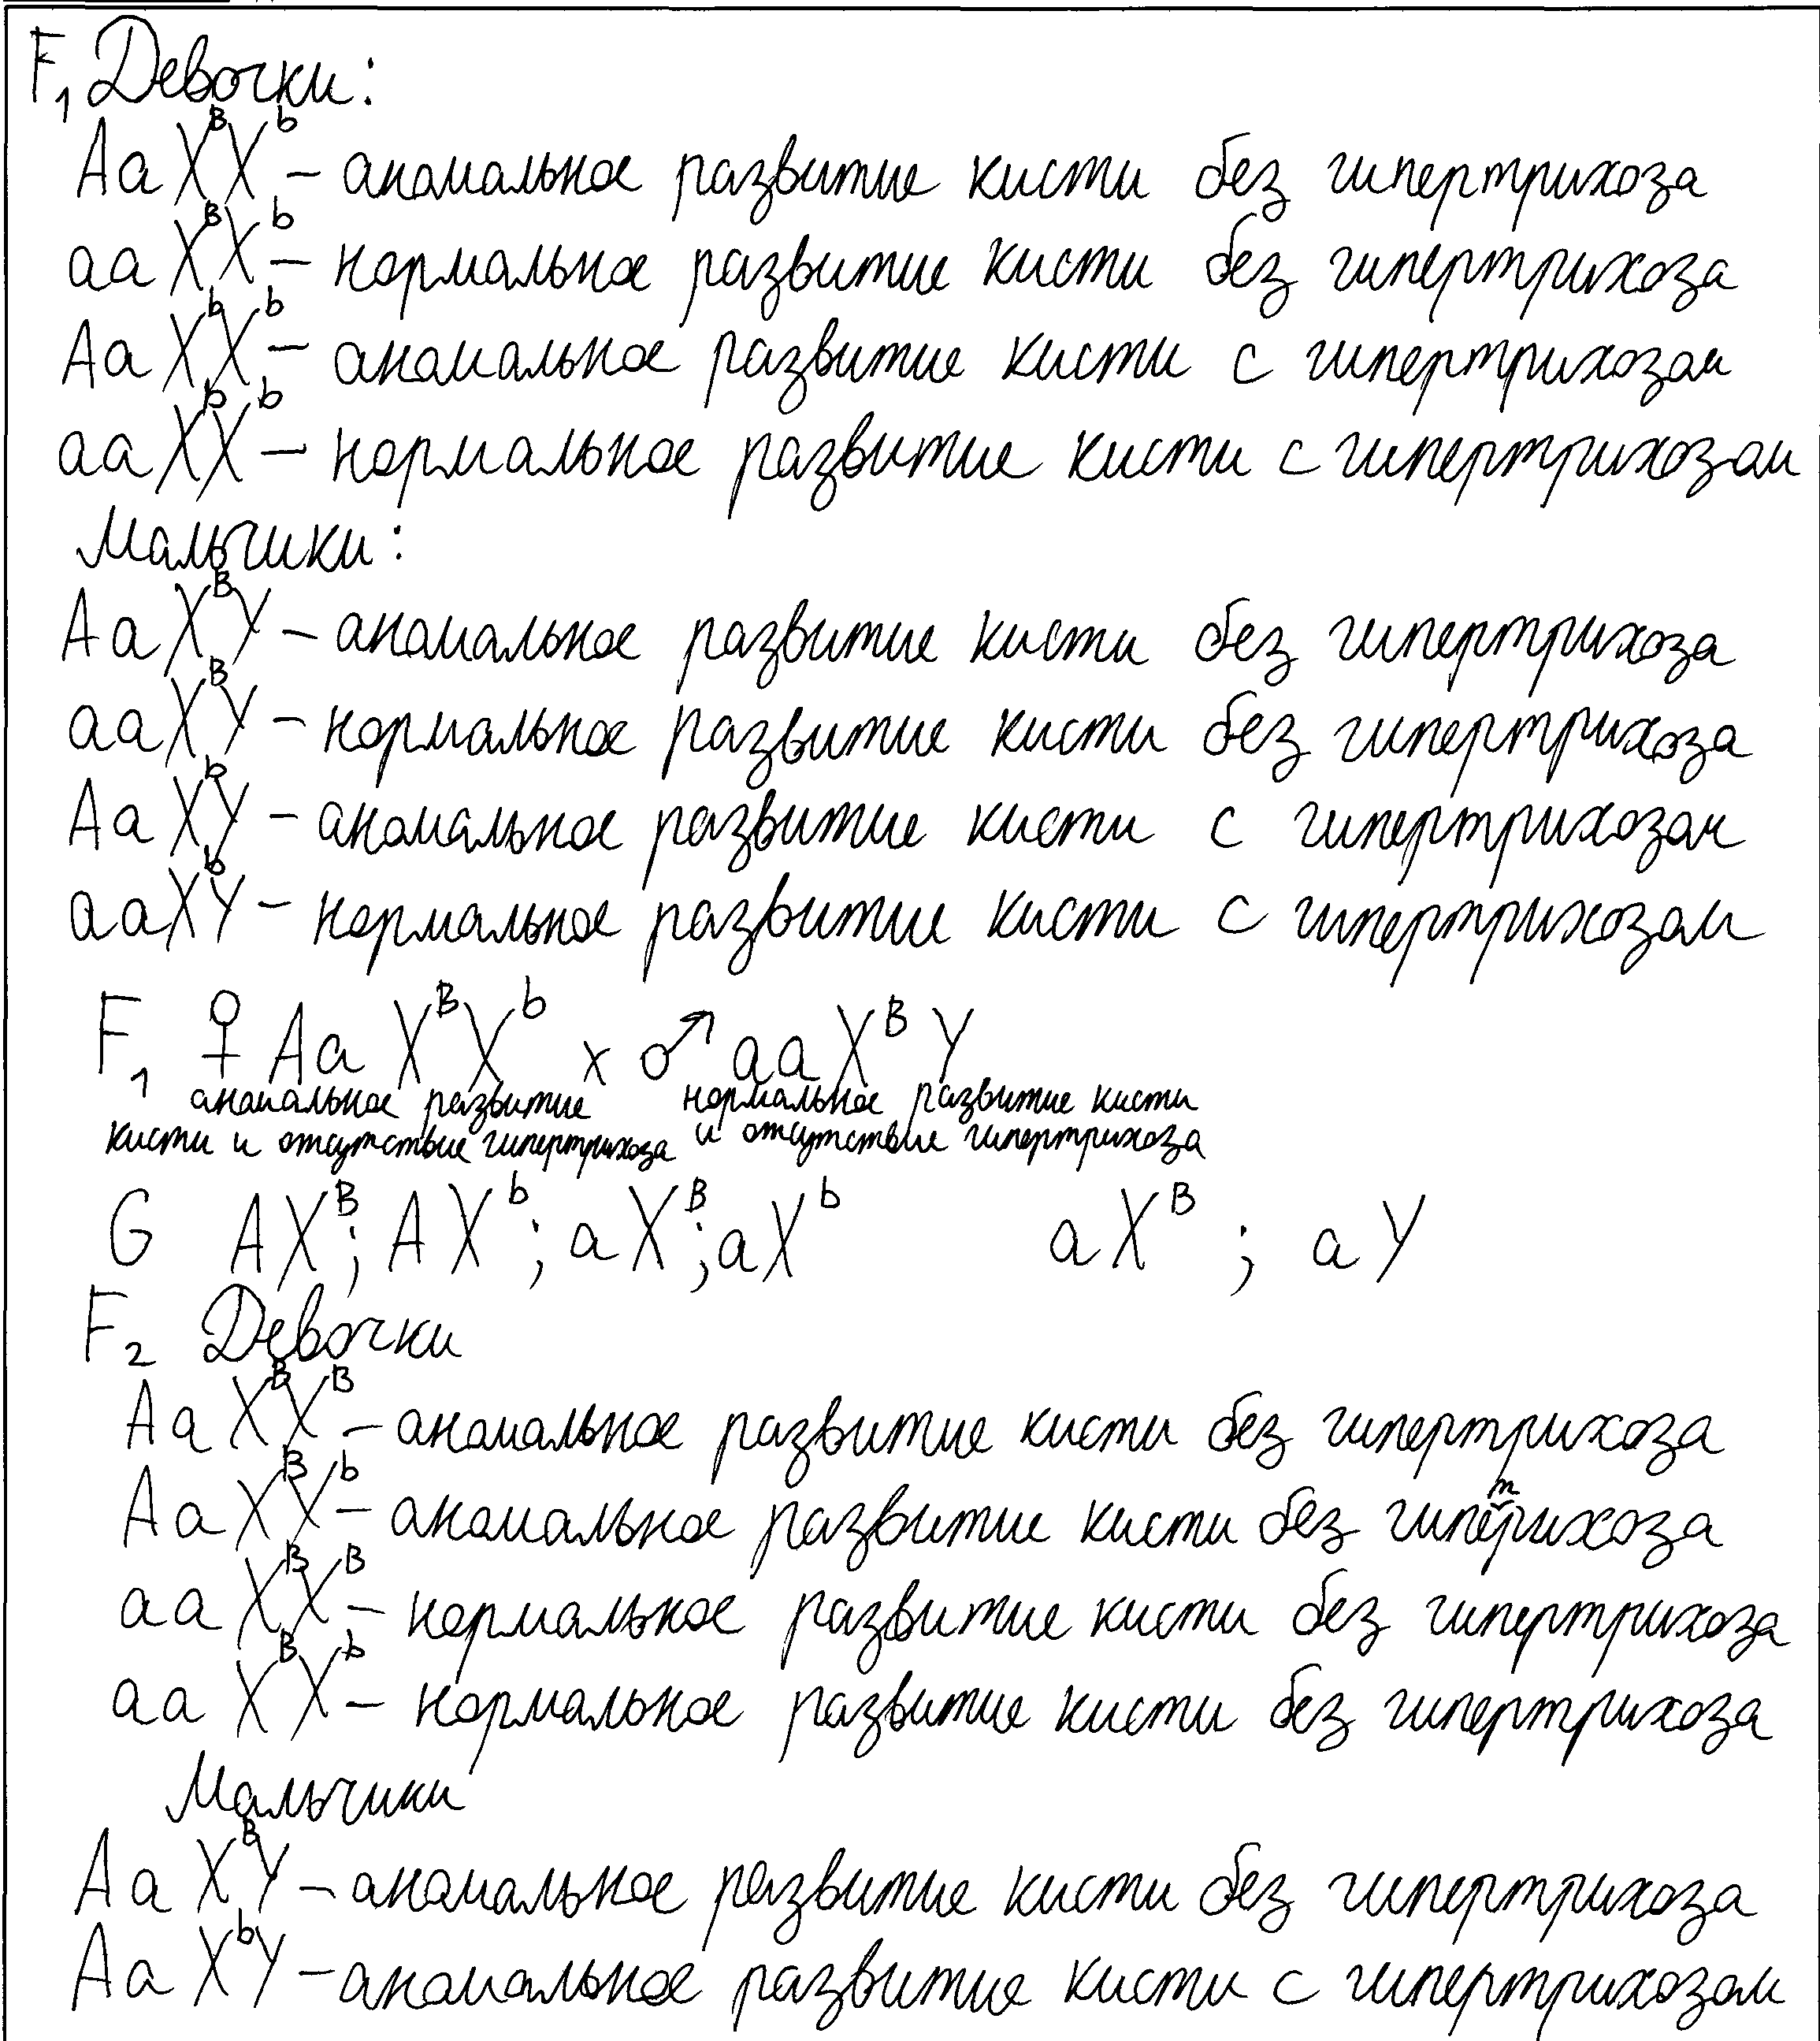 F₁ Девочки:
Aa XᴮXᵇ – аномальное развитие кисти без гипертрихоза
aa XᴮXᵇ – нормальное развитие кисти без гипертрихоза
Aa XᵇXᵇ – аномальное развитие кисти с гипертрихозом
aa XᵇXᵇ – нормальное развитие кисти с гипертрихозом
Мальчики:
Aa XᴮY – аномальное развитие кисти без гипертрихоза
aa XᴮY – нормальное развитие кисти без гипертрихоза
Aa XᵇY – аномальное развитие кисти с гипертрихозом
aa XᵇY – нормальное развитие кисти с гипертрихозом
F₁ ♀ Aa XᴮXᵇ x ♂ aa XᴮY
аномальное развитие нормальное развитие кисти
кисти и отсутствие гипертрихоза и отсутствие гипертрихоза
G AXᴮ; AXᵇ; aXᴮ; aXᵇ aXᴮ ; aY
F₂ Девочки
Aa XᴮXᴮ – аномальное развитие кисти без гипертрихоза
Aa XᴮXᵇ – аномальное развитие кисти без гипертрихоза
aa XᴮXᴮ – нормальное развитие кисти без гипертрихоза
aa XᴮXᵇ – нормальное развитие кисти без гипертрихоза
Мальчики
Aa XᴮY – аномальное развитие кисти без гипертрихоза
Aa XᵇY – аномальное развитие кисти с гипертрихозом